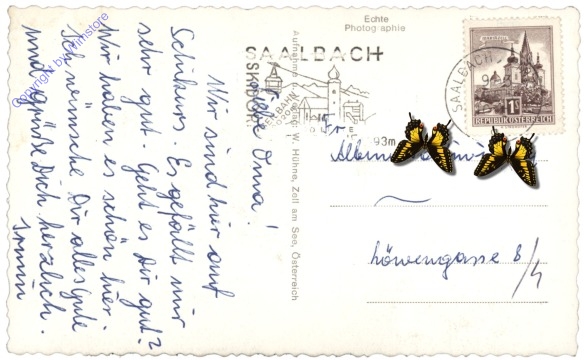 Echte
Photographie
SAALBACH
SKIDORF
SEILBAHN
SAALBACH
REPUBLIK ÖSTERREICH
1S
93m
Aufnahme u. Verlag: W. Hühne, Zell am See, Österreich
Liebe Oma!
Wir sind hier auf
Schikurs. Es gefällt mir
sehr gut. Geht es Dir gut?
Wir haben es schön hier.
Ich wünsche Dir alles Gute
und grüße Dich herzlich.
Armin
Löwengasse 8/
4
Copyright by primstore